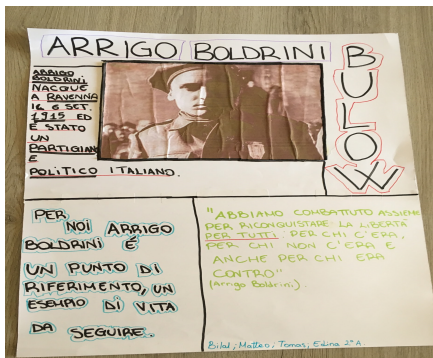 ARRIGO BOLDRINI
BULOW
ARRIGO
BOLDRINI
NACQUE
A RAVENNA
IL 6 SET.
1915 ED
È STATO
UN
PARTIGIANO
E
POLITICO ITALIANO.
PER
NOI ARRIGO
BOLDRINI È
UN PUNTO DI
RIFERIMENTO, UN
ESEMPIO DI VITA
DA SEGUIRE.
"ABBIAMO COMBATTUTO ASSIEME
PER RICONQUISTARE LA LIBERTÀ
PER TUTTI: PER CHI C'ERA,
PER CHI NON C'ERA E
ANCHE PER CHI ERA
CONTRO"
(Arrigo Boldrini)
Bilal; Matteo; Tomas; Edina 2°A.